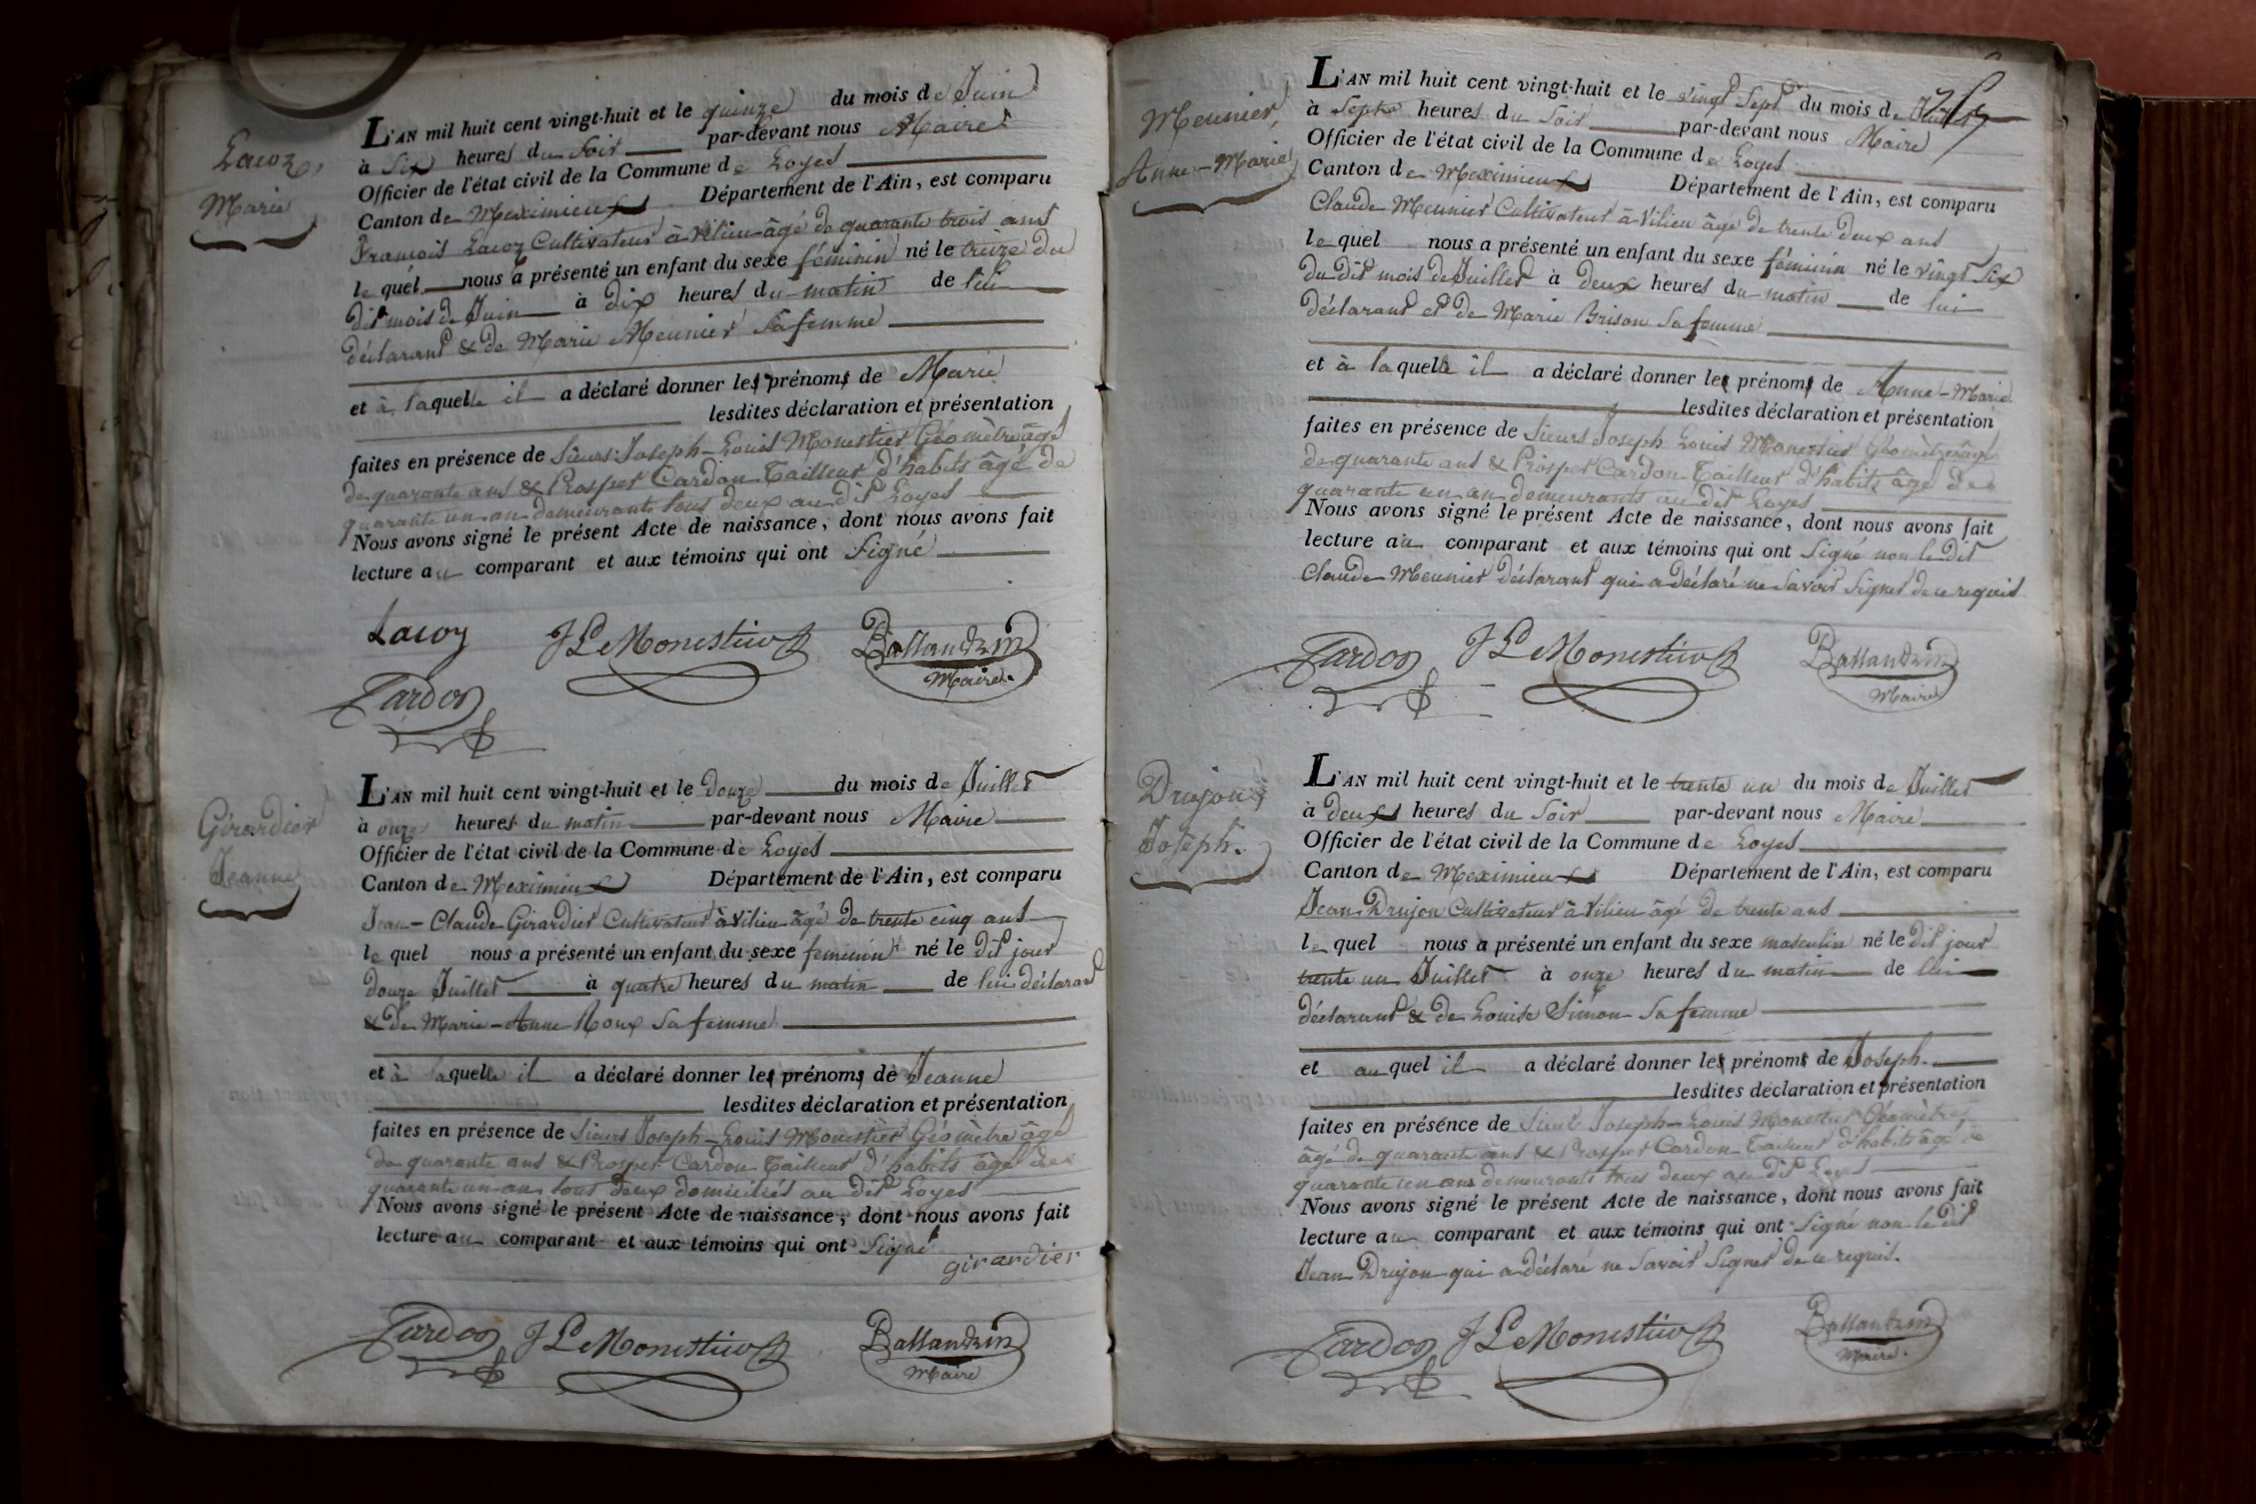 Lacoz,
Marie
L'AN mil huit cent vingt-huit et le quinze du mois de Juin
à Six heures du Soir par-devant nous Maire
Officier de l'état civil de la Commune de Loyes
Canton de Meximieux Département de l'Ain, est comparu
François Lacoz Cultivateur à Vilieu âgé de quarante trois ans
lequel nous a présenté un enfant du sexe féminin né le treize du
dit mois de Juin à dix heures du matin de lui
déclarant & de Marie Meunier Sa femme
et à laquelle il a déclaré donner les prénoms de Marie
lesdites déclaration et présentation
faites en présence de Sieurs Joseph-Louis Monestier Géomètre âgé
de quarante ans & Prosper Cardon Tailleur d'habits âgé de
quarante un an demeurants tous deux au dit Loyes
Nous avons signé le présent Acte de naissance, dont nous avons fait
lecture au comparant et aux témoins qui ont Signé
Lacoz JLeMonestier Ballandrin
Maire.
Cardon
Girardier
Jeanne
L'AN mil huit cent vingt-huit et le douze du mois de Juillet
à onze heures du matin par-devant nous Maire
Officier de l'état civil de la Commune de Loyes
Canton de Meximieux Département de l'Ain, est comparu
Jean-Claude Girardier Cultivateur à Vilieu âgé de trente cinq ans
lequel nous a présenté un enfant du sexe feminin né le dit jour
douze Juillet à quatre heures du matin de lui déclarant
& de Marie-Anne Roux Sa femme
et à laquelle il a déclaré donner les prénoms de Jeanne
lesdites déclaration et présentation
faites en présence de Sieurs Joseph-Louis Monestier Géomètre âgé
de quarante ans & Prosper Cardon Tailleur d'habits âgé de
quarante un an tous deux domiciliés au dit Loyes
Nous avons signé le présent Acte de naissance, dont nous avons fait
lecture au comparant et aux témoins qui ont Signé
girardier
Cardon JLeMonestier Ballandrin
Maire
Meunier,
Anne-Marie
L'AN mil huit cent vingt-huit et le vingt Sept du mois de Juillet
à Sept heures du Soir par-devant nous Maire
Officier de l'état civil de la Commune de Loyes
Canton de Meximieux Département de l'Ain, est comparu
Claude Meunier Cultivateur à Vilieu âgé de trente deux ans
lequel nous a présenté un enfant du sexe féminin né le vingt Six
du dit mois de Juillet à deux heures du matin de lui
déclarant et de Marie Brison Sa femme
et à laquelle il a déclaré donner les prénoms de Anne-Marie
lesdites déclaration et présentation
faites en présence de Sieurs Joseph Louis Monestier Géomètre âgé
de quarante ans & Prosper Cardon Tailleur d'habits âgé de
quarante un an demeurants au dit Loyes
Nous avons signé le présent Acte de naissance, dont nous avons fait
lecture au comparant et aux témoins qui ont Signé non le dit
Claude Meunier déclarant qui a déclaré ne Savoir Signer de ce requis
Cardon JLeMonestier Ballandrin
Maire
Drujon,
Joseph.
L'AN mil huit cent vingt-huit et le trente un du mois de Juillet
à deux heures du Soir par-devant nous Maire
Officier de l'état civil de la Commune de Loyes
Canton de Meximieux Département de l'Ain, est comparu
Jean Drujon Cultivateur à Vilieu âgé de trente ans
lequel nous a présenté un enfant du sexe masculin né le dit jour
trente un Juillet à onze heures du matin de lui
déclarant & de Louise Simon Sa femme
et auquel il a déclaré donner les prénoms de Joseph.
lesdites déclaration et présentation
faites en présence de Sieurs Joseph-Louis Monestier Géomètre,
âgé de quarante ans & Prosper Cardon Tailleur d'habits âgé de
quarante un ans demeurants tous deux au dit Loyes
Nous avons signé le présent Acte de naissance, dont nous avons fait
lecture au comparant et aux témoins qui ont Signé non le dit
Jean Drujon qui a déclaré ne Savoir Signer de ce requis.
Cardon JLeMonestier Ballandrin
Maire.